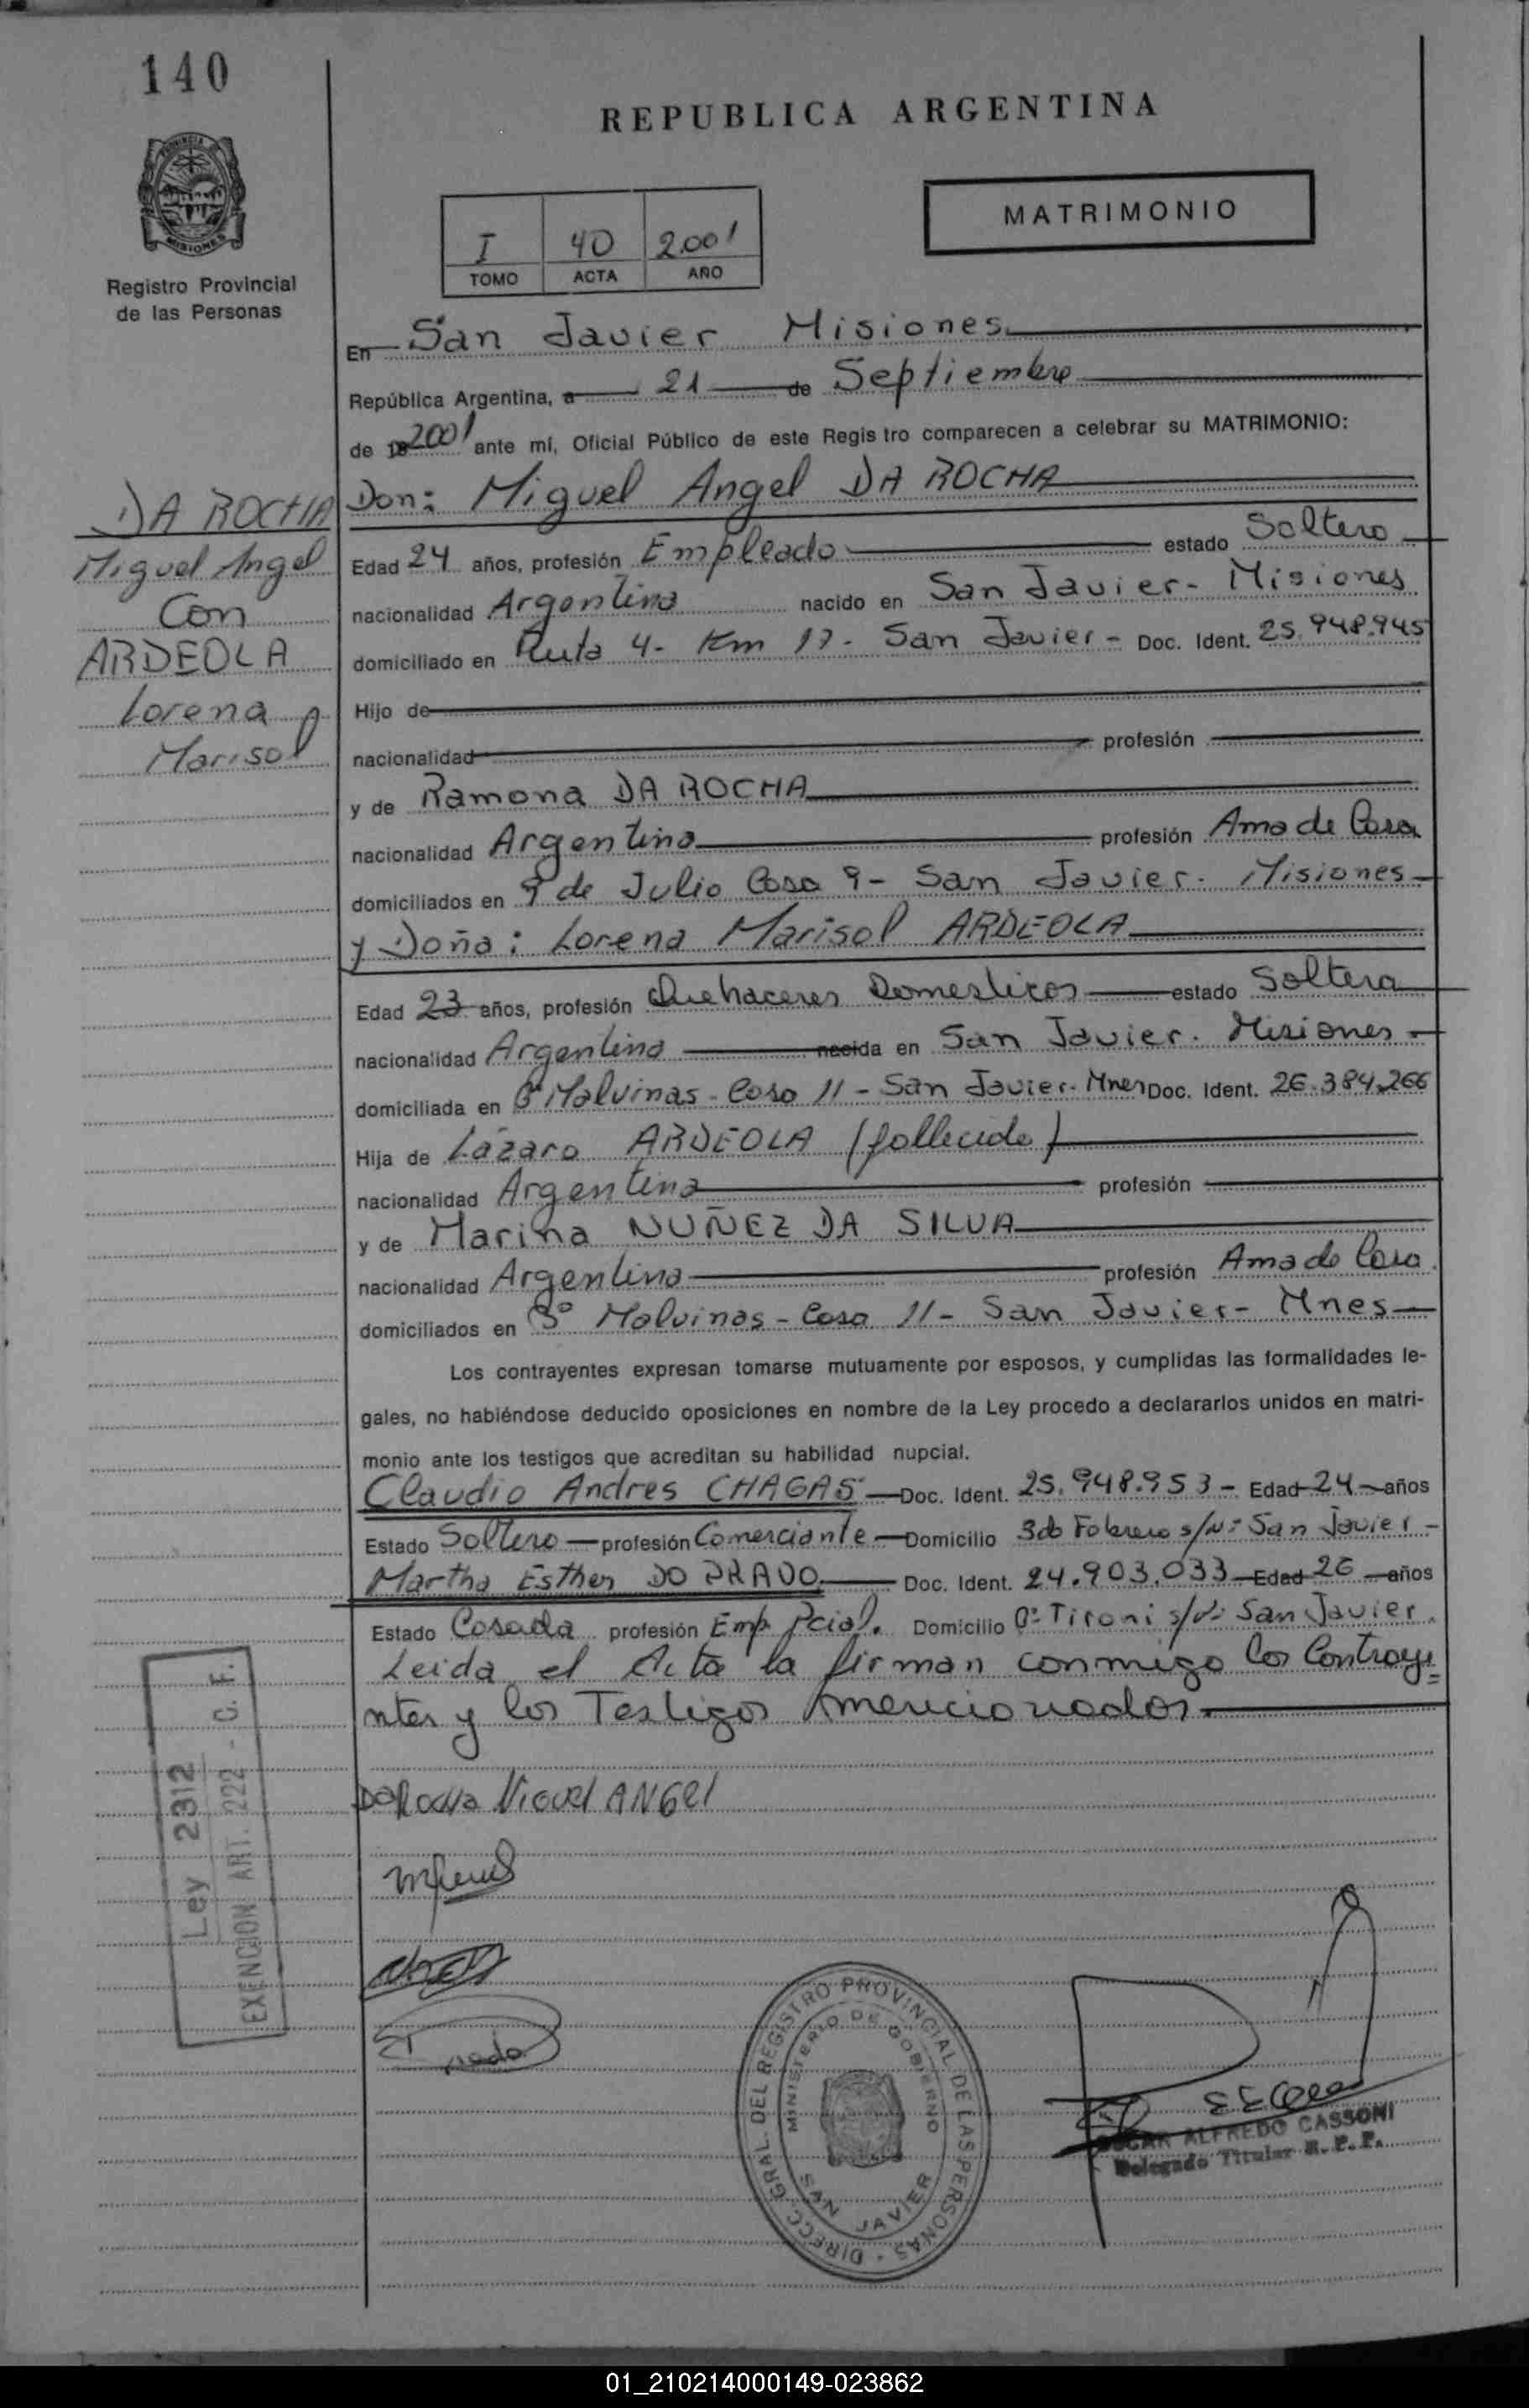 140
REPUBLICA ARGENTINA
PROVINCIA DE
MISIONES
Registro Provincial
de las Personas
I 40 2001
TOMO ACTA AÑO
MATRIMONIO
En San Javier Misiones
República Argentina, a 21 de Septiembre
de 2001 ante mí, Oficial Público de este Regis tro comparecen a celebrar su MATRIMONIO:
Don: Miguel Angel DA ROCHA
DA ROCHA
Miguel Angel
Con
ARDEOLA
Lorena
Marisol
Edad 24 años, profesión Empleado estado Soltero
nacionalidad Argentina nacido en San Javier - Misiones
domiciliado en Ruta 4 - Km 17 - San Javier - Doc. Ident. 25.948.945
Hijo de
nacionalidad profesión
y de Ramona DA ROCHA
nacionalidad Argentina profesión Ama de Casa
domiciliados en 9 de Julio Casa 9 - San Javier - Misiones
y Doña: Lorena Marisol ARDEOLA
Edad 23 años, profesión Quehaceres Domesticos estado Soltera
nacionalidad Argentina nacida en San Javier - Misiones
domiciliada en Bº Malvinas - Casa 11 - San Javier - Mnes Doc. Ident. 26.384.266
Hija de Lázaro ARDEOLA (fallecido)
nacionalidad Argentina profesión
y de Marina NUÑEZ DA SILVA
nacionalidad Argentina profesión Ama de Casa
domiciliados en Bº Malvinas - Casa 11 - San Javier - Mnes
Los contrayentes expresan tomarse mutuamente por esposos, y cumplidas las formalidades le-
gales, no habiéndose deducido oposiciones en nombre de la Ley procedo a declararlos unidos en matri-
monio ante los testigos que acreditan su habilidad nupcial.
Claudio Andres CHAGAS Doc. Ident. 25.948.953 - Edad 24 años
Estado Soltero profesión Comerciante Domicilio 3 de Febrero s/n: San Javier -
Martha Esther DO PRADO Doc. Ident. 24.903.033 Edad 26 años
Estado Casada profesión Emp. Pcial. Domicilio Bº Tironi s/n: San Javier
Leida el Acta la firman conmigo los Contraye=
ntes y los Testigos Amencionados
Ley 2312
EXENCION ART. 222 - C. F.
DA ROCHA MIGUEL ANGEL
Prado
DIRECC. GRAL. DEL REGISTRO PROVINCIAL DE LAS PERSONAS
MINISTERIO DE GOBIERNO
SAN JAVIER
OSCAR ALFREDO CASSONI
Delegado Titular R. P. P.
01_210214000149-023862